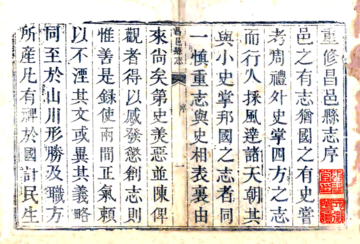 重修昌邑縣志序
邑之有志猶國之有史嘗
考周禮外史掌四方之志
而行人採風達諸天朝其
與小史掌邦國之志者同
一慎重志與史相表裏由
昌邑縣志
序
一
來尚矣第史美惡並陳俾
觀者得以感發懲創志則
惟善是錄使兩間正氣賴
以不湮其文或異其義略
同至於山川形勝及職方
所產凡有裨於國計民生